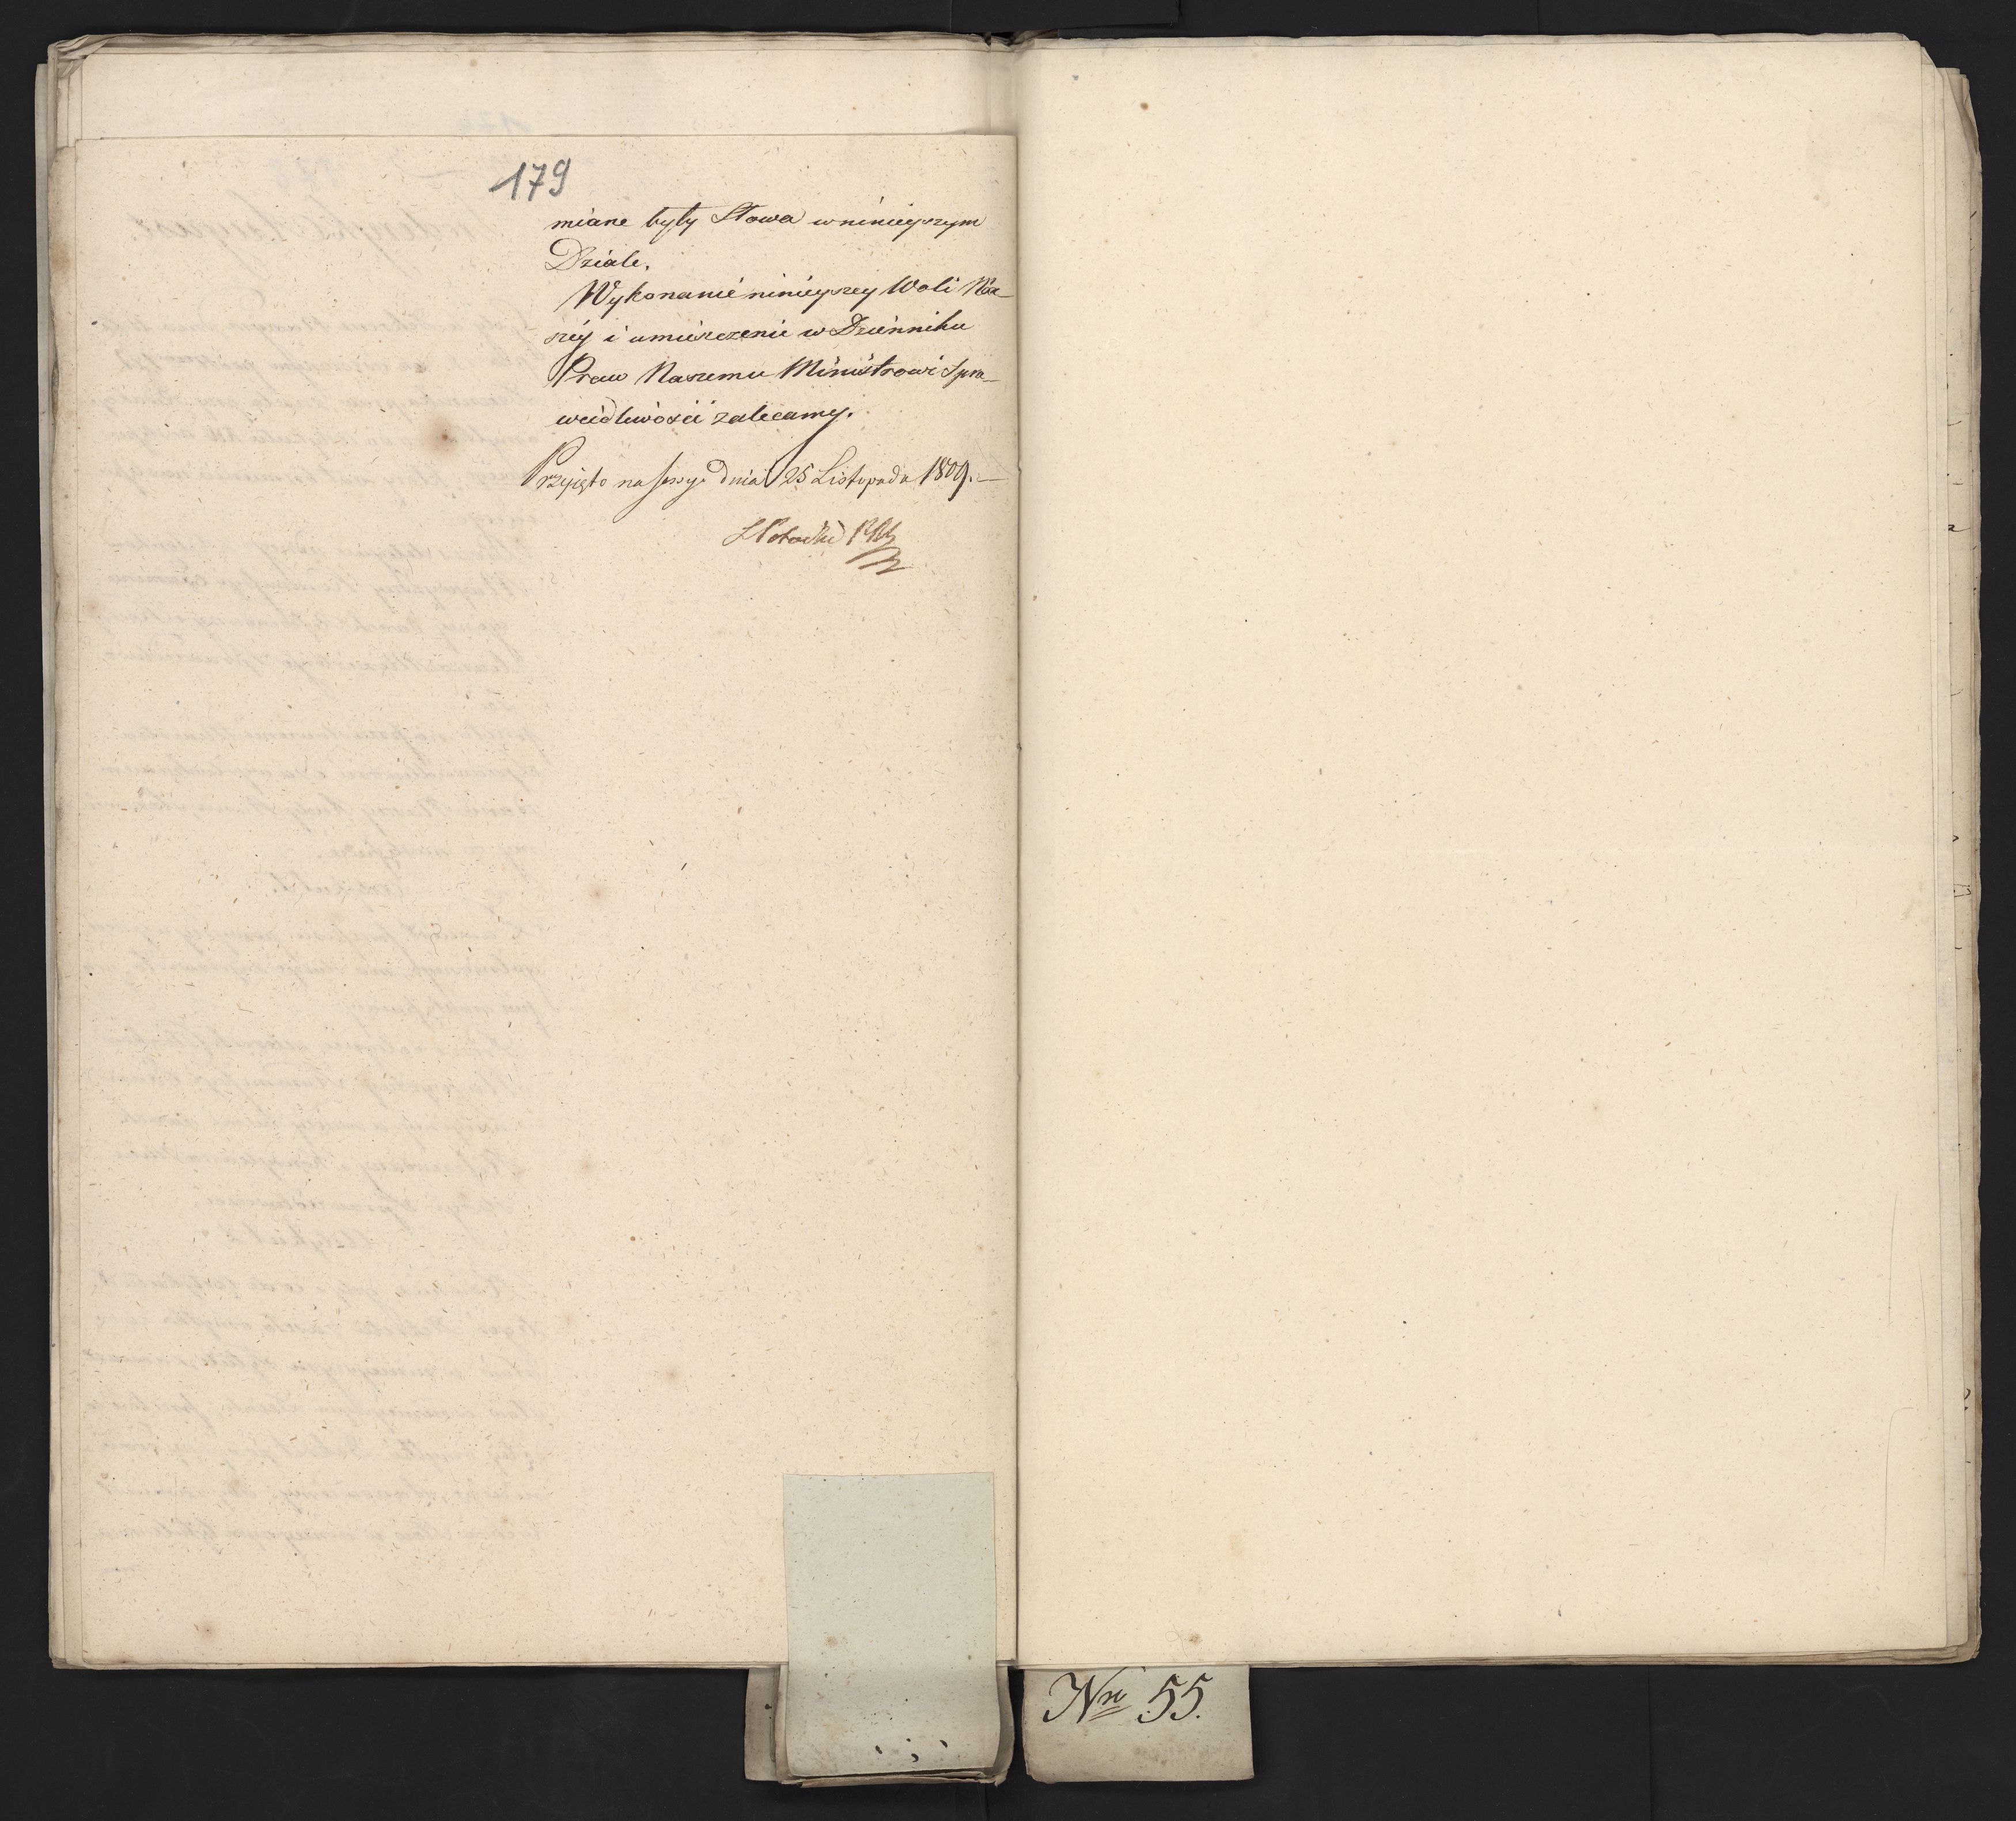 179
miane były Słowa w ninieyszym
Dziale.
Wykonanie ninieyszey Woli Na-
szey i umieszczenie w Dzienniku
Praw Naszemu Ministrowi Spra-
wiedliwości zalecamy.
Przyięto na sessyi Dnia 25 Listopada 1809.
Potocki
Nro 55.